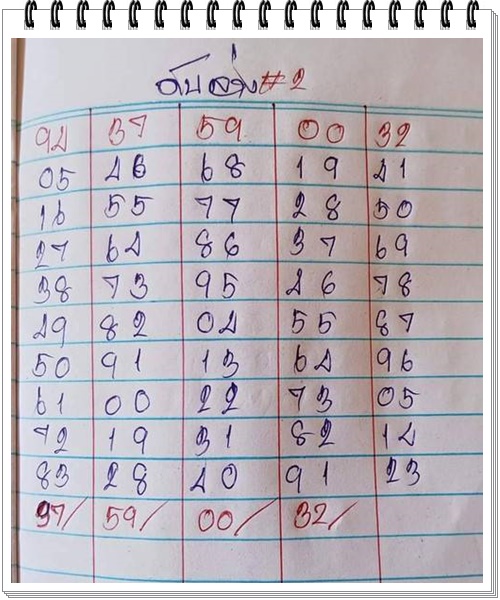 ดับล่าง#2
94 37 59 00 32
05 46 68 19 41
16 55 77 28 50
27 64 86 37 69
38 73 95 46 78
49 82 04 55 87
50 91 13 64 96
61 00 22 73 05
72 19 31 82 14
83 28 40 91 23
37/ 59/ 00/ 32/